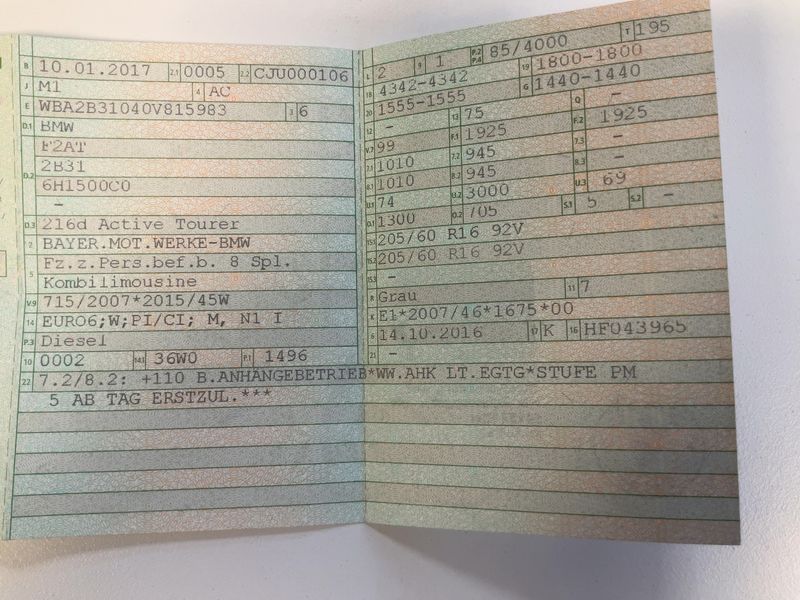 B 10.01.2017 2.1 0005 2.2 CJU000106
J M1 4 AC
E WBA2B31040V815983 3 6
D.1 BMW
F2AT
D.2 2B31
6H1500C0
–
D.3 216d Active Tourer
2 BAYER.MOT.WERKE-BMW
5 Fz.z.Pers.bef.b. 8 Spl.
Kombilimousine
V.9 715/2007*2015/45W
14 EURO6;W;PI/CI; M, N1 I
P.3 Diesel
10 0002 14.1 36W0 P.1 1496
L 2 9 1 P.2 P.4 85/4000 T 195
18 4342-4342 19 1800-1800
20 1555-1555 G 1440-1440
12 – 13 75 Q –
V.7 99 F.1 1925 F.2 1925
7.1 1010 7.2 945 7.3 –
8.1 1010 8.2 945 8.3 –
U.1 74 U.2 3000 U.3 69
O.1 1300 O.2 705 S.1 5 S.2 –
15.1 205/60 R16 92V
15.2 205/60 R16 92V
15.3 –
R Grau 11 7
K E1*2007/46*1675*00
6 14.10.2016 17 K 16 HF043965
21 –
22 7.2/8.2: +110 B.ANHÄNGEBETRIEB*WW.AHK LT.EGTG*STUFE PM
5 AB TAG ERSTZUL.***